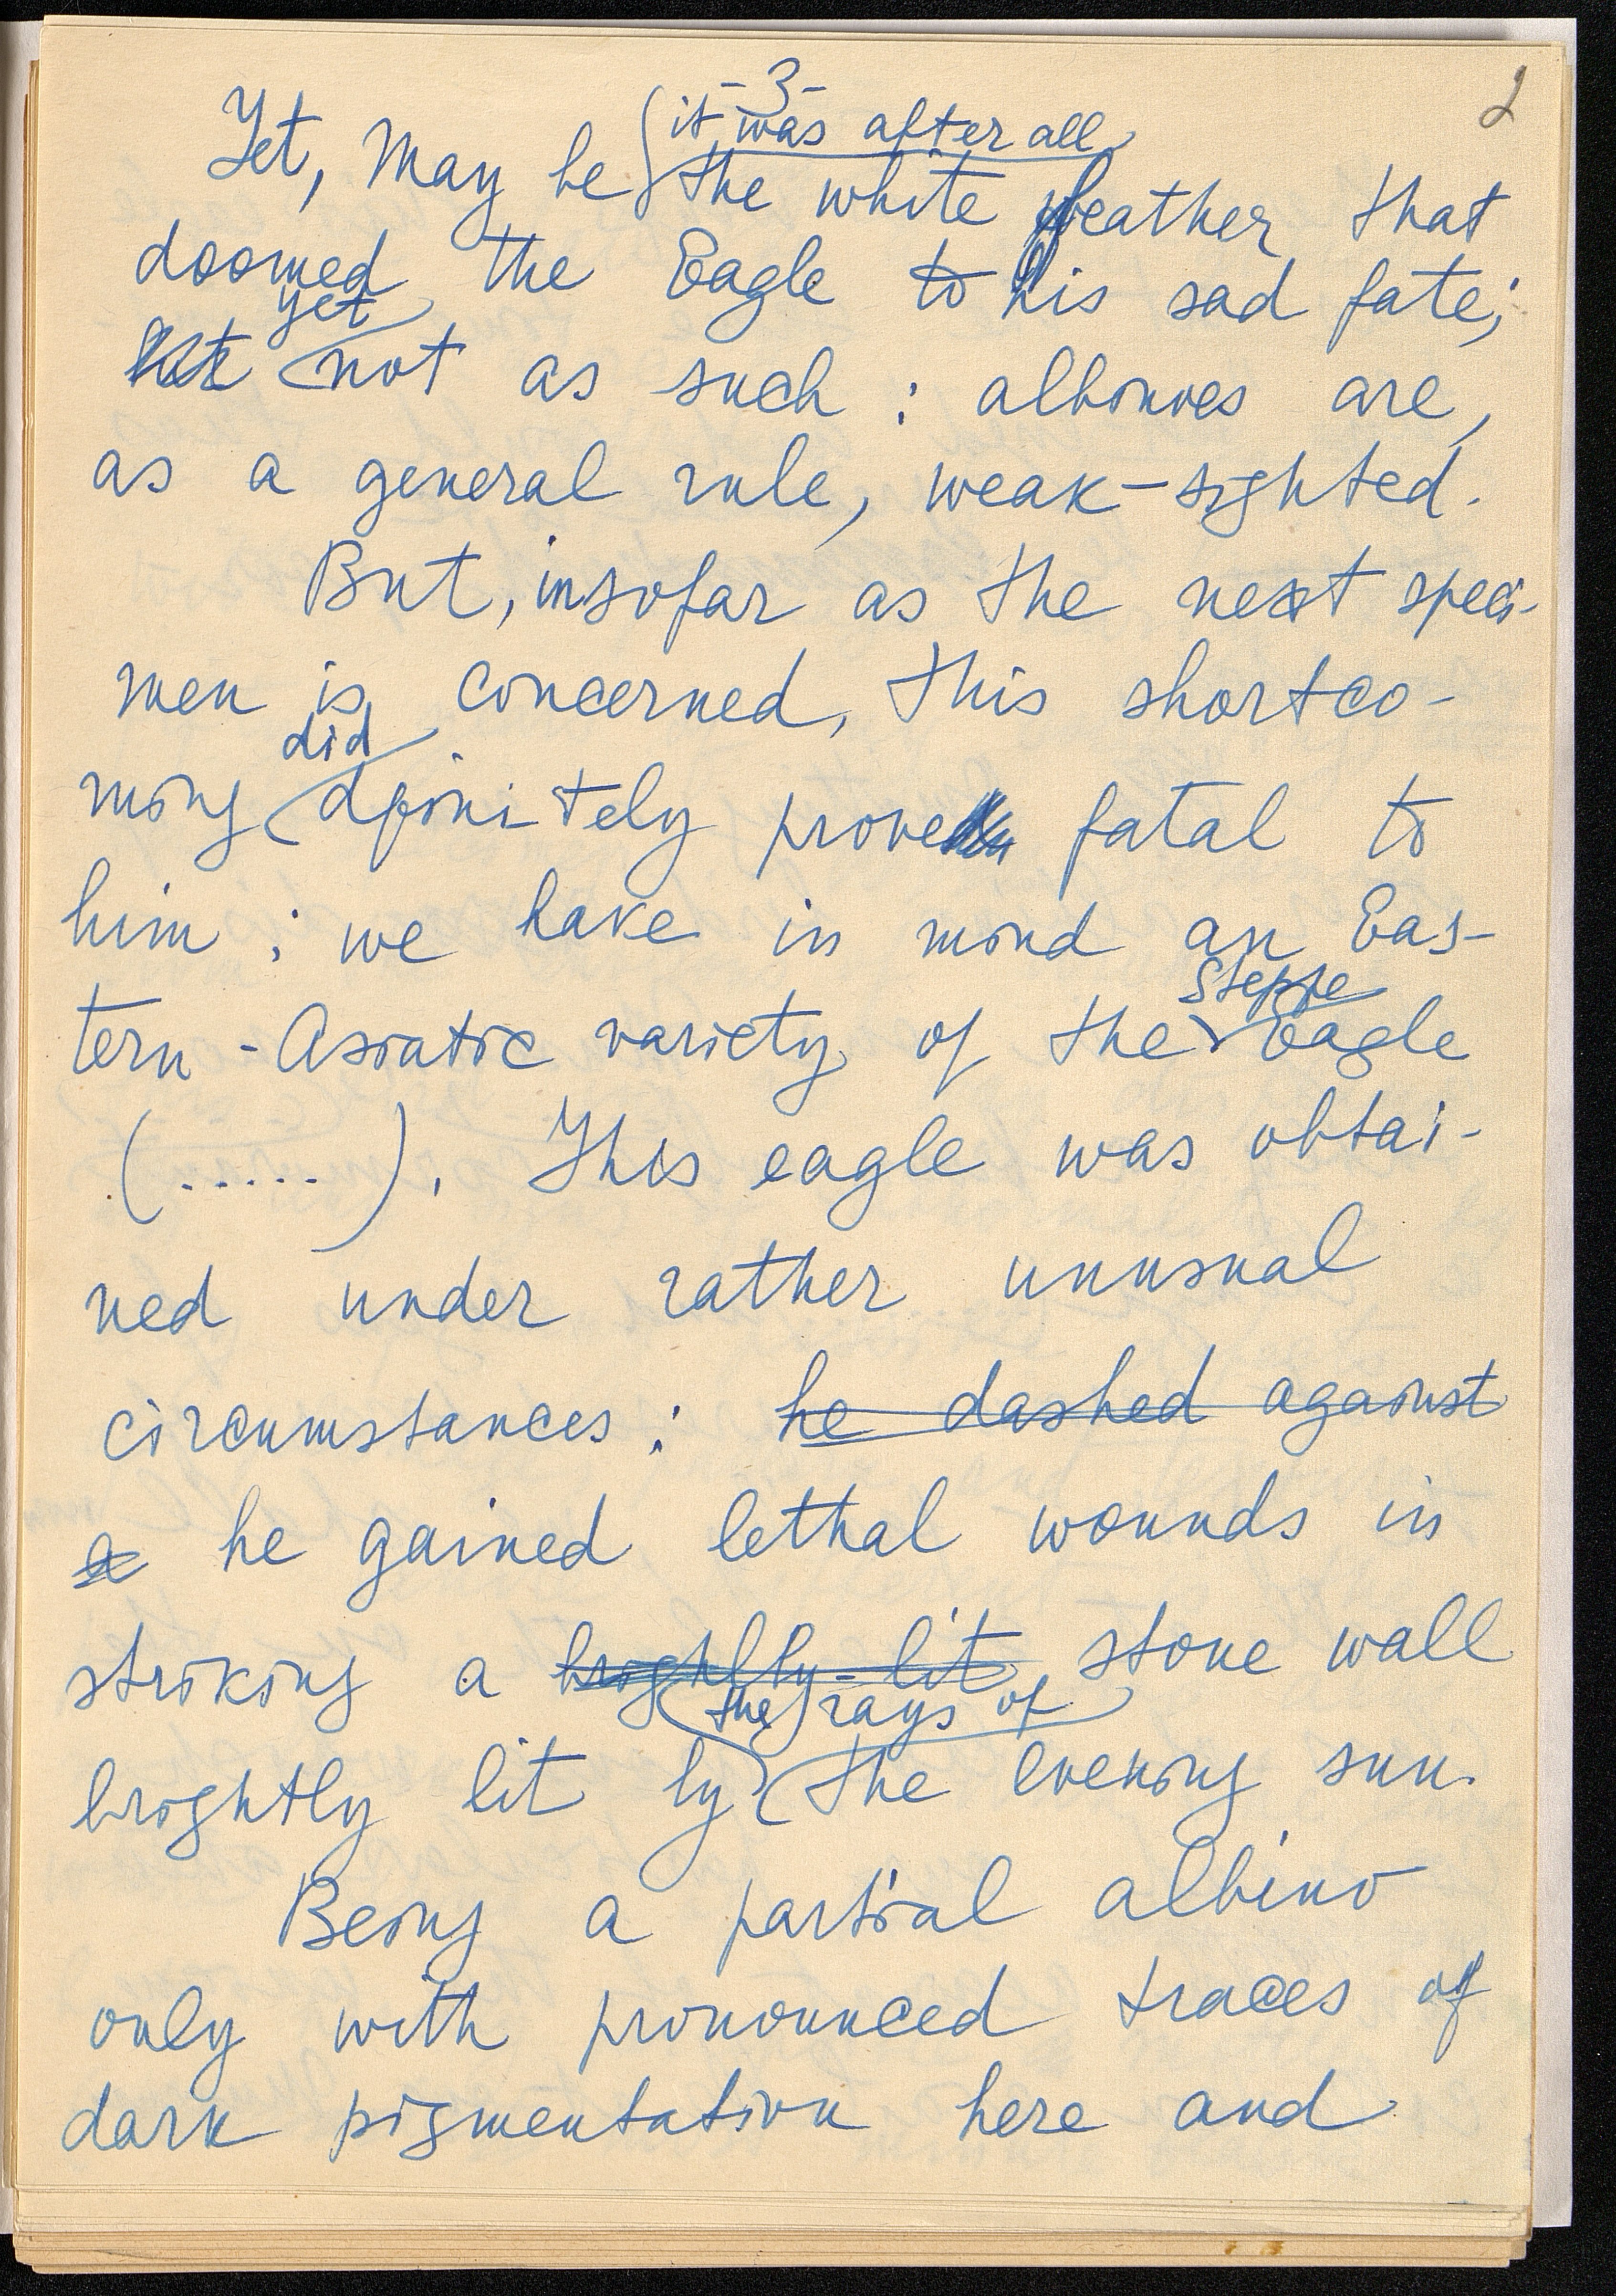 -3-
2
it was after all
Yet, May be the white feather that
doomed the Eagle to his sad fate;
yet
but not as such : albinoes are,
as a general rule, weak-sighted.
But, insofar as the next speci-
men is concerned, this shortco-
did
ming dfinitely prove fatal to
him ; we have in mind an Eas-
Steppe
tern - Asiatic variety of the Eagle
(......). This eagle was obtai-
ned under rather unusual
circumstances : he dashed against
a he gained lethal wounds in
striking a brightly-lit stone wall
the rays of
brightly lit by the evening sun.
Being a partial albino
only with pronounced traces of
dark pigmentation here and